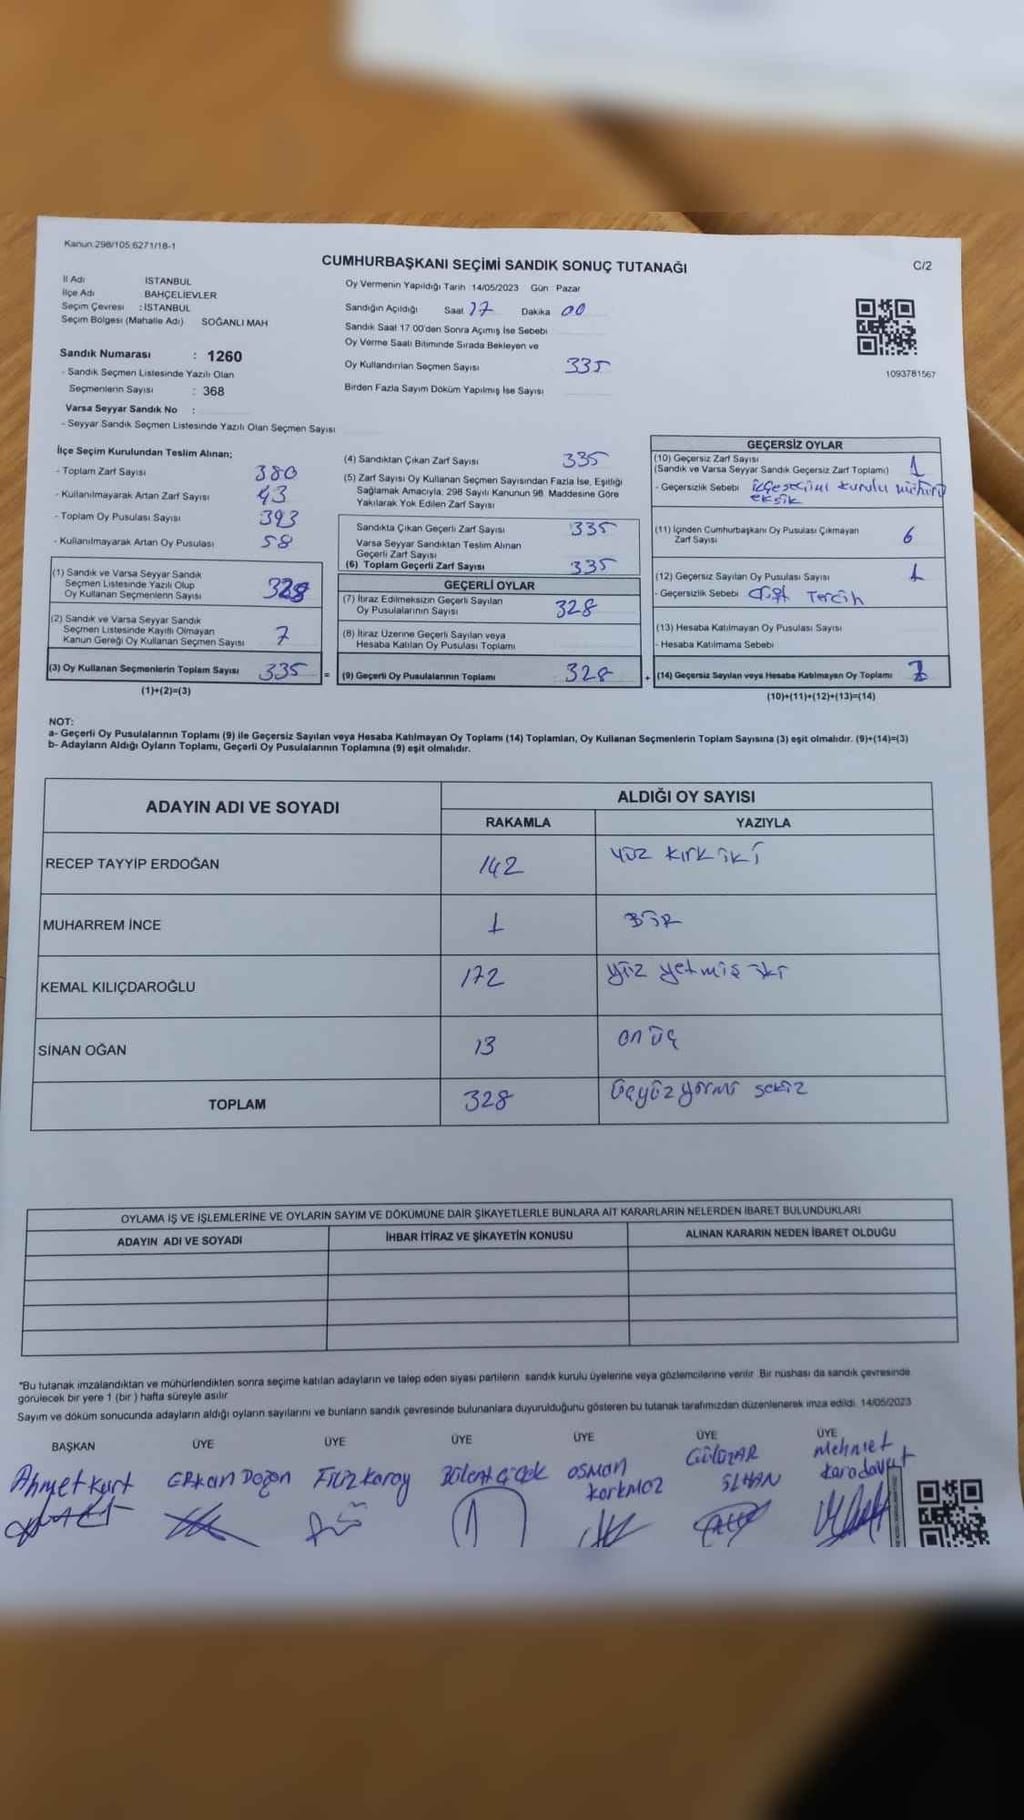 Kanun:298/105;6271/18-1
CUMHURBAŞKANI SEÇİMİ SANDIK SONUÇ TUTANAĞI
C/2
İl Adı İSTANBUL
İlçe Adı BAHÇELİEVLER
Seçim Çevresi : İSTANBUL
Seçim Bölgesi (Mahalle Adı) SOĞANLI MAH
Sandık Numarası : 1260
- Sandık Seçmen Listesinde Yazılı Olan
Seçmenlerin Sayısı : 368
Varsa Seyyar Sandık No :
- Seyyar Sandık Seçmen Listesinde Yazılı Olan Seçmen Sayısı
Oy Vermenin Yapıldığı Tarih 14/05/2023 Gün : Pazar
Sandığın Açıldığı Saat 17 Dakika 00
Sandık Saat 17.00'den Sonra Açımış İse Sebebi
Oy Verme Saati Bitiminde Sırada Bekleyen ve
Oy Kullandırılan Seçmen Sayısı 335
Birden Fazla Sayım Döküm Yapılmış İse Sayısı
1093781567
İlçe Seçim Kurulundan Teslim Alınan;
- Toplam Zarf Sayısı 380
- Kullanılmayarak Artan Zarf Sayısı 43
- Toplam Oy Pusulası Sayısı 393
- Kullanılmayarak Artan Oy Pusulası 58
(1) Sandık ve Varsa Seyyar Sandık
Seçmen Listesinde Yazılı Olup
Oy Kullanan Seçmenlerin Sayısı 328
(2) Sandık ve Varsa Seyyar Sandık
Seçmen Listesinde Kayıtlı Olmayan
Kanun Gereği Oy Kullanan Seçmen Sayısı 7
(3) Oy Kullanan Seçmenlerin Toplam Sayısı 335
(1)+(2)=(3)
(4) Sandıktan Çıkan Zarf Sayısı 335
(5) Zarf Sayısı Oy Kullanan Seçmen Sayısından Fazla İse, Eşitliği
Sağlamak Amacıyla, 298 Sayılı Kanunun 98. Maddesine Göre
Yakılarak Yok Edilen Zarf Sayısı
Sandıkta Çıkan Geçerli Zarf Sayısı 335
Varsa Seyyar Sandıktan Teslim Alınan
Geçerli Zarf Sayısı
(6) Toplam Geçerli Zarf Sayısı 335
GEÇERLİ OYLAR
(7) İtiraz Edilmeksizin Geçerli Sayılan
Oy Pusulalarının Sayısı 328
(8) İtiraz Üzerine Geçerli Sayılan veya
Hesaba Katılan Oy Pusulası Toplamı
= (9) Geçerli Oy Pusulalarının Toplamı 328
GEÇERSİZ OYLAR
(10) Geçersiz Zarf Sayısı
(Sandık ve Varsa Seyyar Sandık Geçersiz Zarf Toplamı) 1
- Geçersizlik Sebebi ilçe seçimi kurulu mührü
eksik
(11) İçinden Cumhurbaşkanı Oy Pusulası Çıkmayan
Zarf Sayısı 6
(12) Geçersiz Sayılan Oy Pusulası Sayısı 1
- Geçersizlik Sebebi Çift Tercih
(13) Hesaba Katılmayan Oy Pusulası Sayısı
- Hesaba Katılmama Sebebi
+ (14) Geçersiz Sayılan veya Hesaba Katılmayan Oy Toplamı
(10)+(11)+(12)+(13)=(14)
NOT:
a- Geçerli Oy Pusulalarının Toplamı (9) ile Geçersiz Sayılan veya Hesaba Katılmayan Oy Toplamı (14) Toplamları, Oy Kullanan Seçmenlerin Toplam Sayısına (3) eşit olmalıdır. (9)+(14)=(3)
b- Adayların Aldığı Oyların Toplamı, Geçerli Oy Pusulalarının Toplamına (9) eşit olmalıdır.
ADAYIN ADI VE SOYADI
ALDIĞI OY SAYISI
RAKAMLA YAZIYLA
RECEP TAYYİP ERDOĞAN 142 yüz kırk iki
MUHARREM İNCE 1 BİR
KEMAL KILIÇDAROĞLU 172 yüz yetmiş iki
SİNAN OĞAN 13 on üç
TOPLAM 328 üçyüz yirmi sekiz
OYLAMA İŞ VE İŞLEMLERİNE VE OYLARIN SAYIM VE DÖKÜMÜNE DAİR ŞİKAYETLERLE BUNLARA AİT KARARLARIN NELERDEN İBARET BULUNDUKLARI
ADAYIN ADI VE SOYADI İHBAR İTİRAZ VE ŞİKAYETİN KONUSU ALINAN KARARIN NEDEN İBARET OLDUĞU
*Bu tutanak imzalandıktan ve mühürlendikten sonra seçime katılan adayların ve talep eden siyasi partilerin sandık kurulu üyelerine veya gözlemcilerine verilir. Bir nüshası da sandık çevresinde
görülecek bir yere 1 (bir) hafta süreyle asılır
Sayım ve döküm sonucunda adayların aldığı oyların sayılarını ve bunların sandık çevresinde bulunanlara duyurulduğunu gösteren bu tutanak tarafımızdan düzenlenerek imza edildi. 14/05/2023
BAŞKAN ÜYE ÜYE ÜYE ÜYE ÜYE ÜYE
Ahmet Kurt Erkan Doğan Filiz Karay Bülent Çiçek Osman Korkmaz Gülüzar SLHAN Mehmet Karadavut